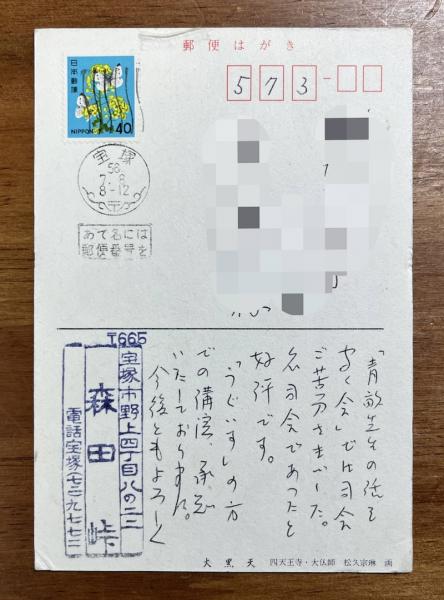 郵便はがき
日本郵便
NIPPON
40
573
宝塚
58
7.8
8-12
あて名には
郵便番号を
「青畝先生の話を
聞く会」では司会
ご苦労さまでした。
名司会であったと
好評です。
「うぐいす」の方
での講演、承知
いたしております。
今後ともよろしく
〒665
宝塚市野上四丁目八の二二
森田峠
電話宝塚(七二)九七七二
大黒天 四天王寺・大仏師 松久宗琳 画